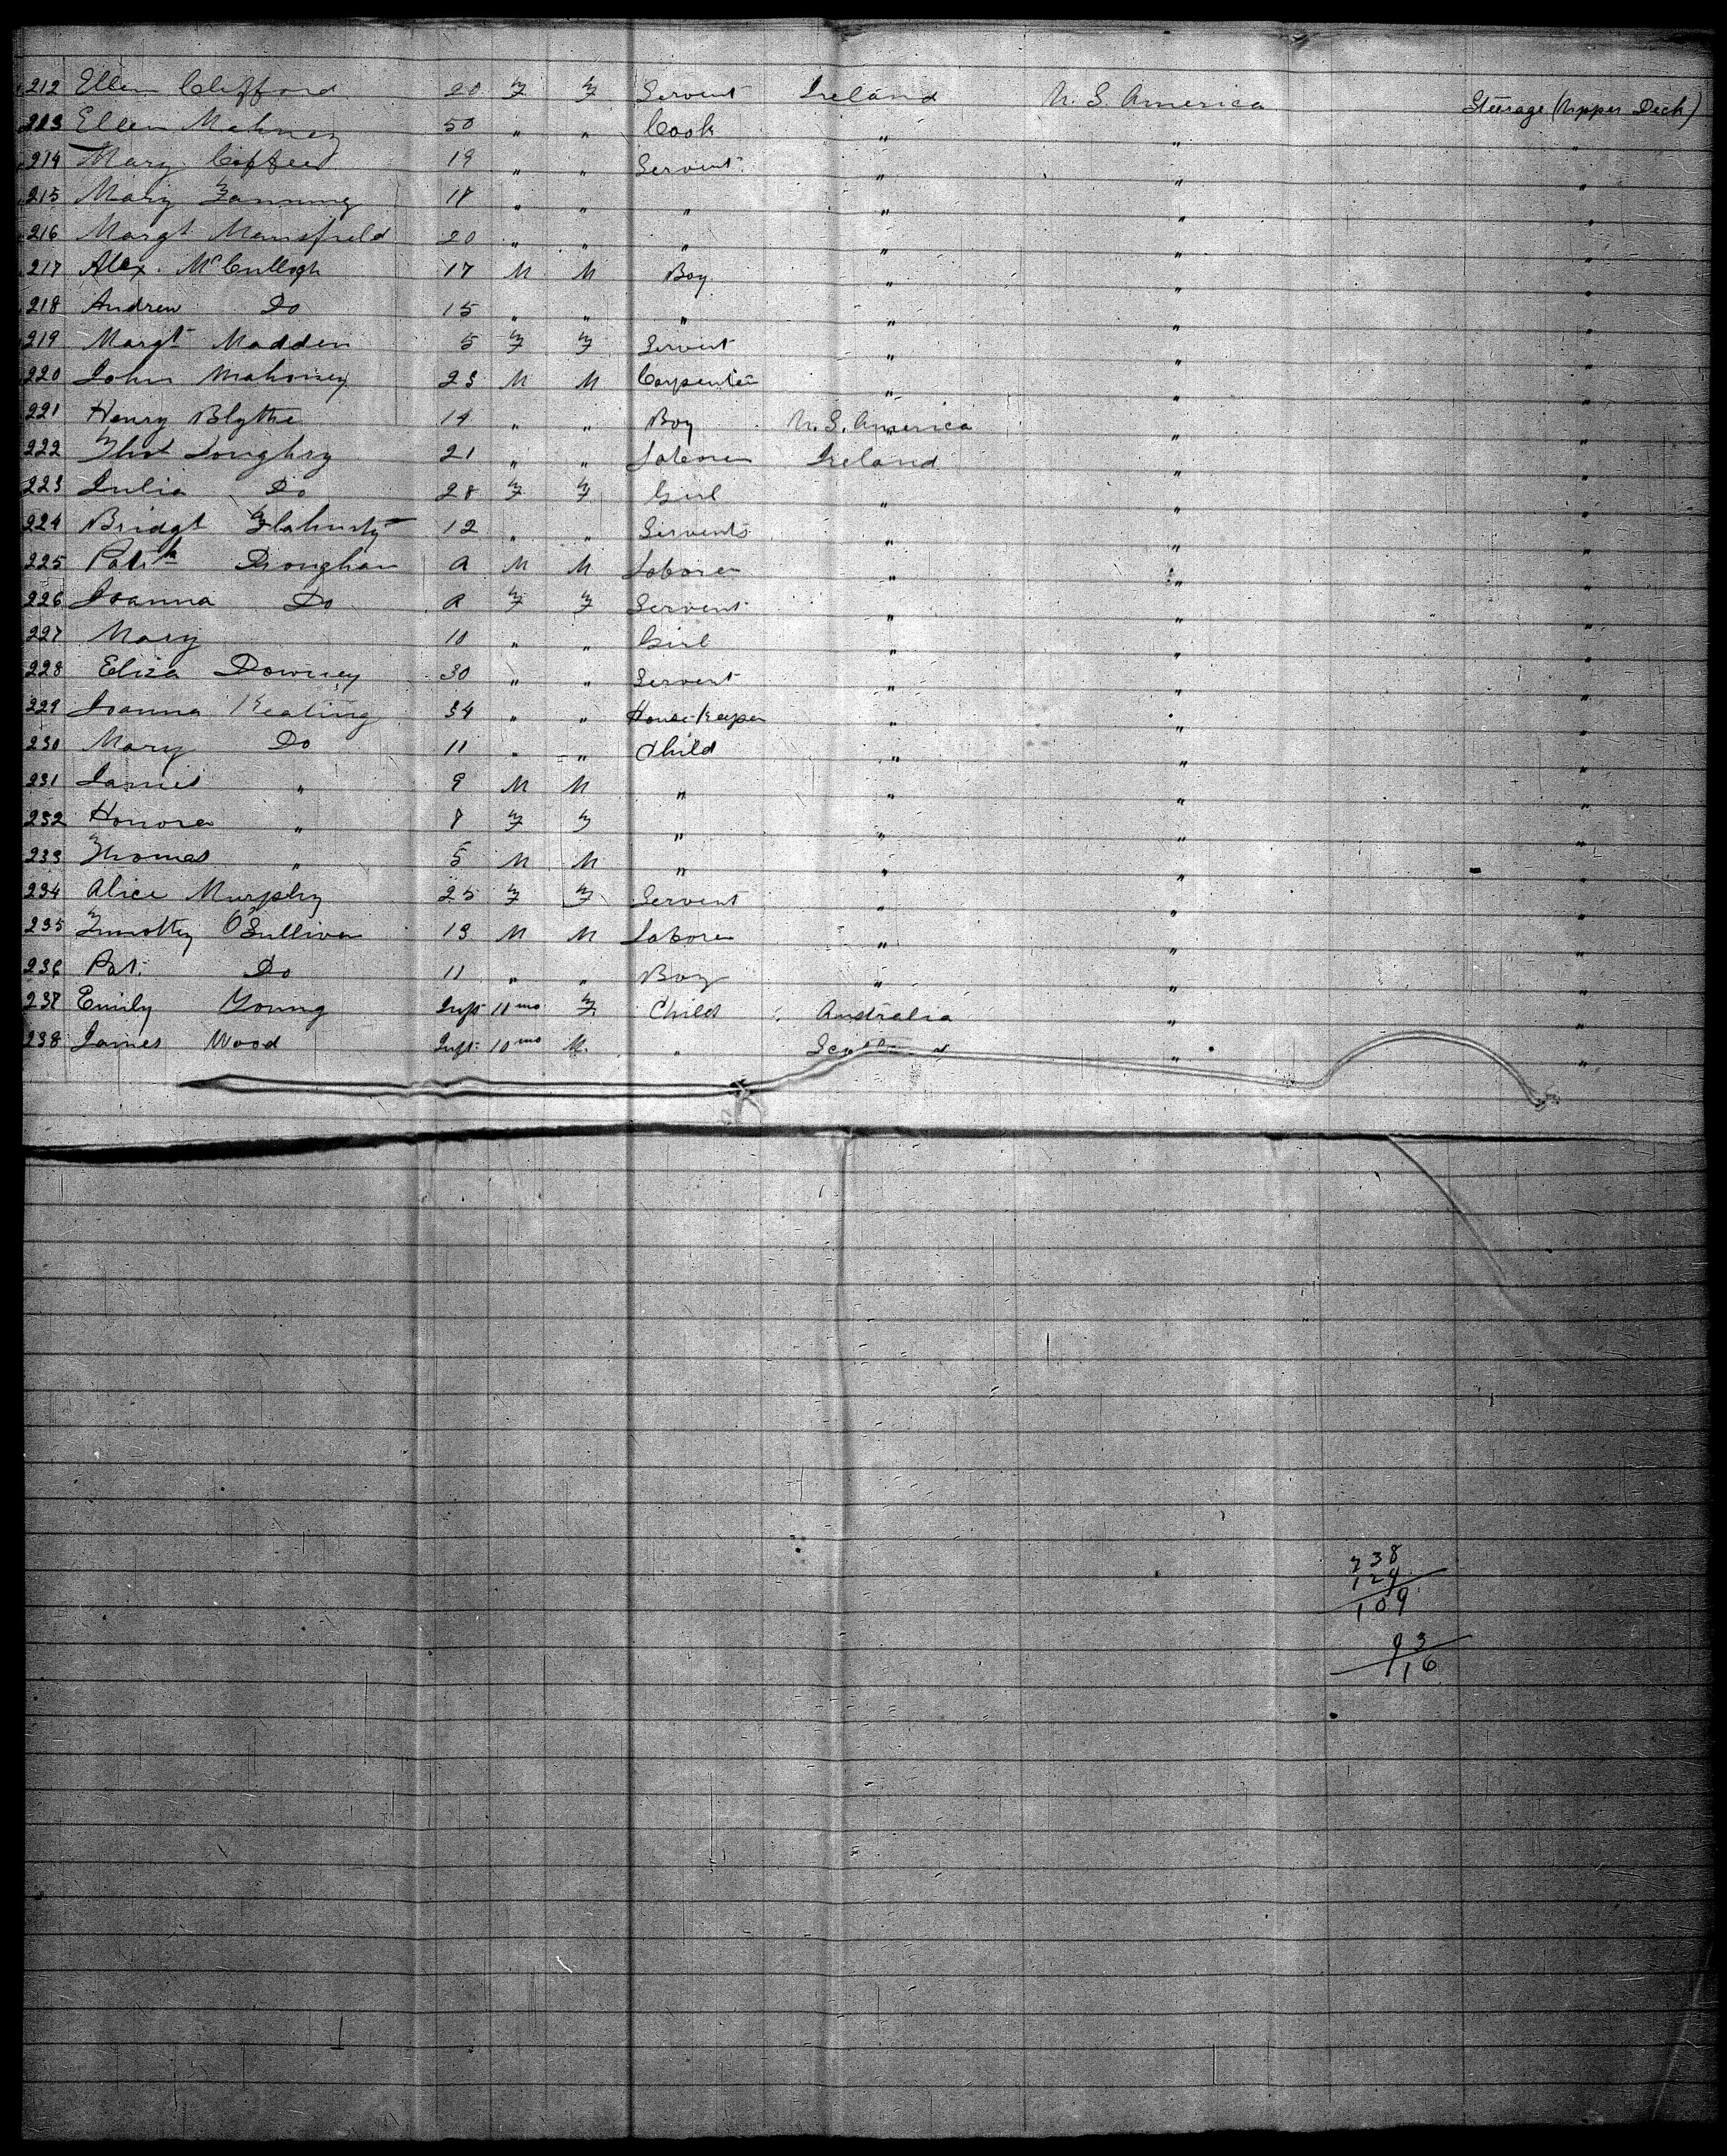 212 Ellen Clifford 20 F F Servent Ireland U. S. America Steerage (Upper Deck)
213 Ellen Mahney 50 " " Cook " " "
214 Mary Coffee 19 " " Servent " " "
215 Mary Fanning 18 " " " " " "
216 Margt Mansfield 20 " " " " " "
217 Alex. McCullogh 17 M M Boy " " "
218 Andrew Do 15 " " " " " "
219 Margt Madden 5 F F Servent " " "
220 John Mahoney 23 M M Carpenter " " "
221 Henry Blythe 14 " " Boy U. S. America " "
222 Thos Loughry 21 " " Laborer Ireland " "
223 Julia Do 28 F F Girl " " "
224 Bridgt Flahurty 12 " " Servents " " "
225 Patk Droughan A M M Laborer " " "
226 Joanna Do A F F Servent " " "
227 Mary 10 " " Girl " " "
228 Eliza Downey 30 " " Servent " " "
229 Joanna Keating 34 " " House Keeper " " "
230 Mary Do 11 " " Child " " "
231 James " 9 M M " " " "
232 Honora " 8 F F " " " "
233 Thomas " 5 M M " " " "
234 Alice Murphy 25 F F Servent " " "
235 Timothy O'Sullivan 13 M M Laborer " " "
236 Pat. Do 11 " " Boy " " "
237 Emily Young Inft 11 mo F Child Australia " "
238 James Wood Inft 10 mo M. " Scotland " "
238
129
109
93
116